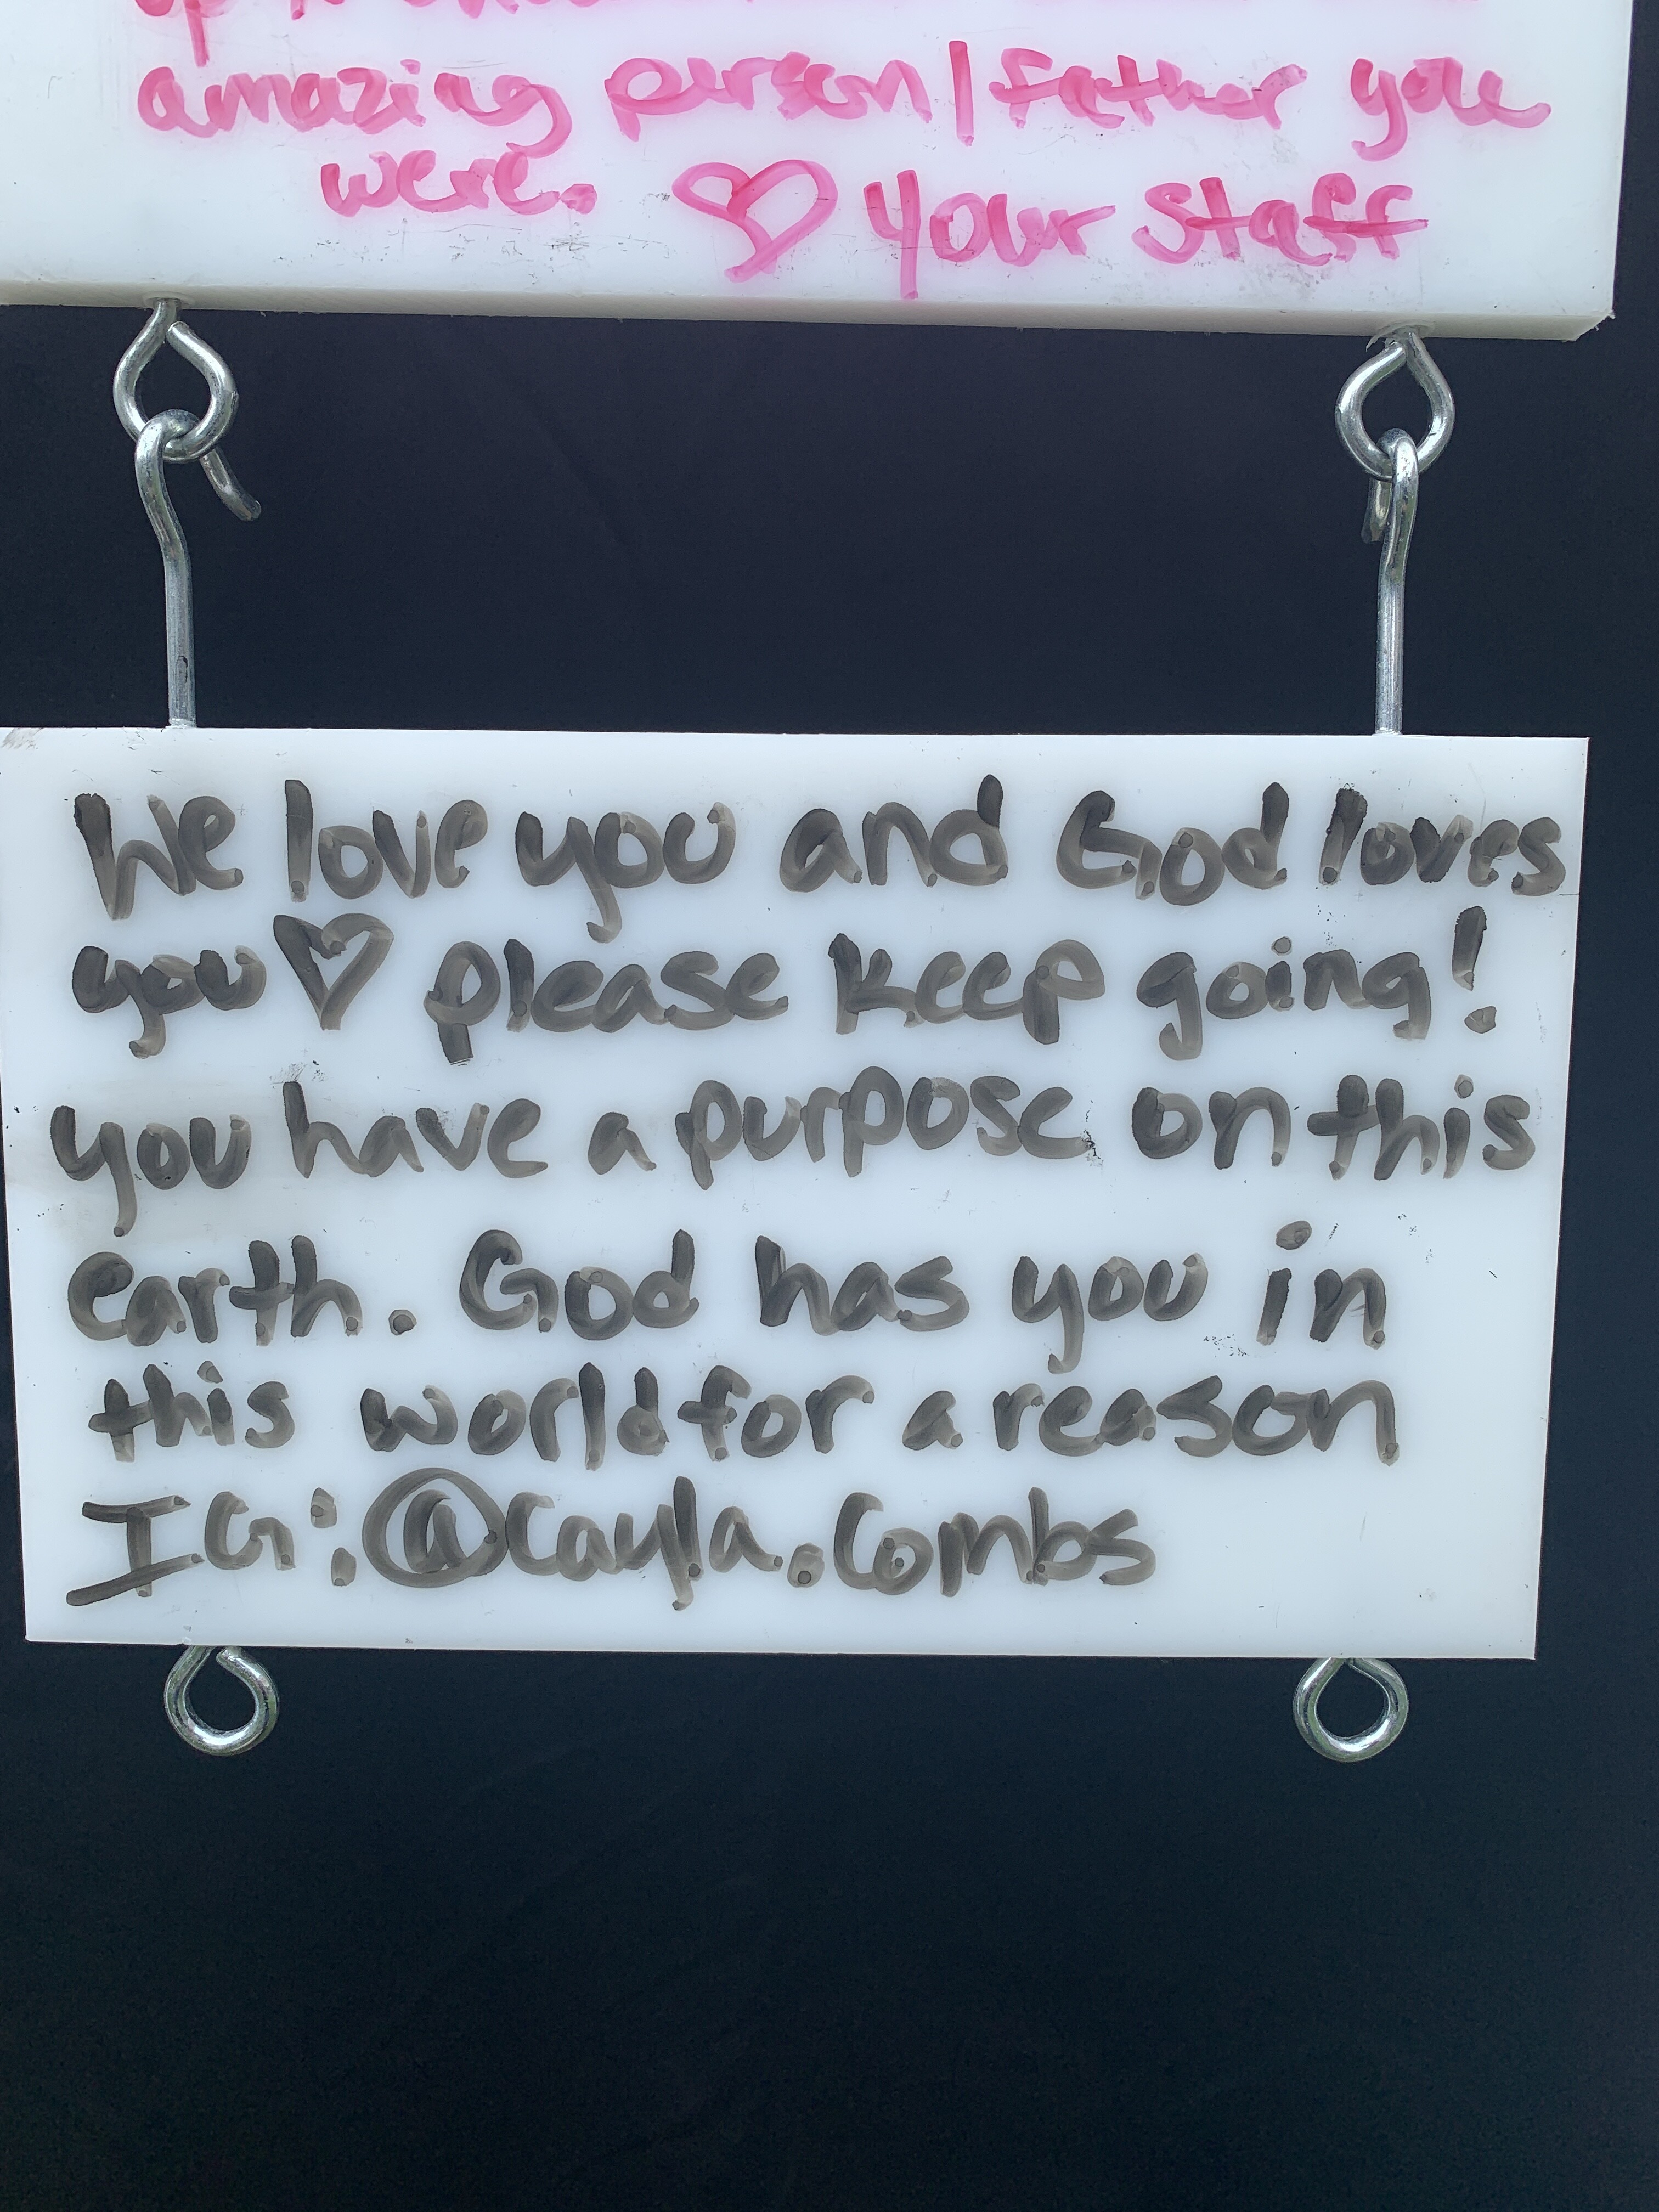 amazing person/father you
were. ♡ your staff
We love you and God loves
you♡ please keep going!
you have a purpose on this
earth. God has you in
this world for a reason
IG:@cayla.combs